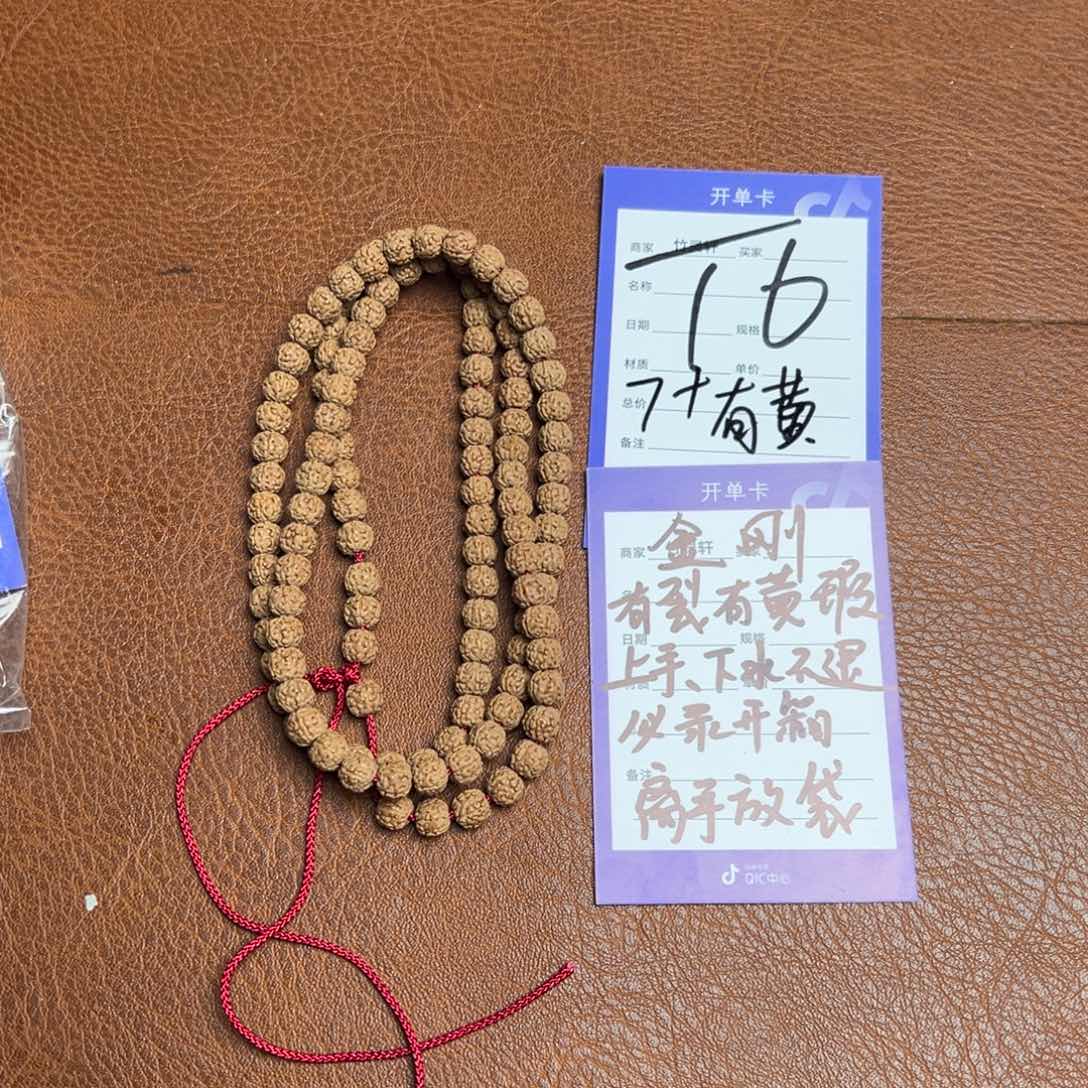 开单卡
商家 竹 轩 买家
名称
16
日期 规格
材质 单价
总价
7+有黄
备注
开单卡
商家 轩
金刚
有裂有黄瑕
日期 规格
上手、下水不退
必录开箱
备注
离手放袋
QIC中心